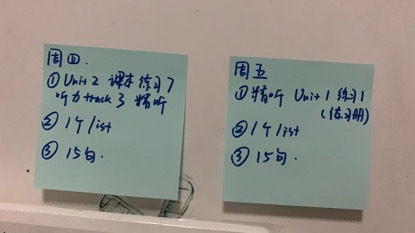 周四.
① Unit 2 课本练习7
听力 track 3 精听
② 1个list
③ 15句.
周五
① 精听 Unit 1 练习1
(练习册)
② 1个list
③ 15句.